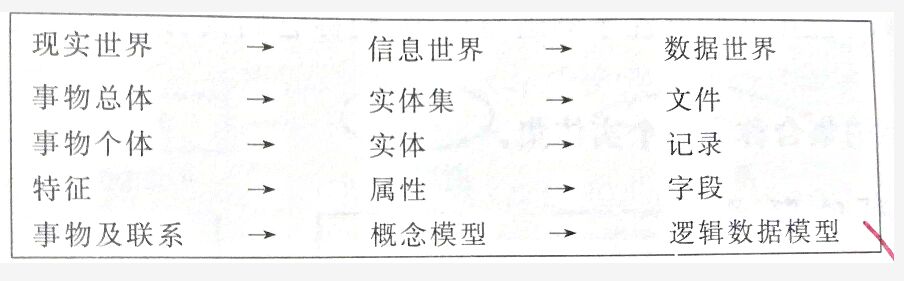 现实世界 → 信息世界 → 数据世界
事物总体 → 实体集 → 文件
事物个体 → 实体 → 记录
特征 → 属性 → 字段
事物及联系 → 概念模型 → 逻辑数据模型